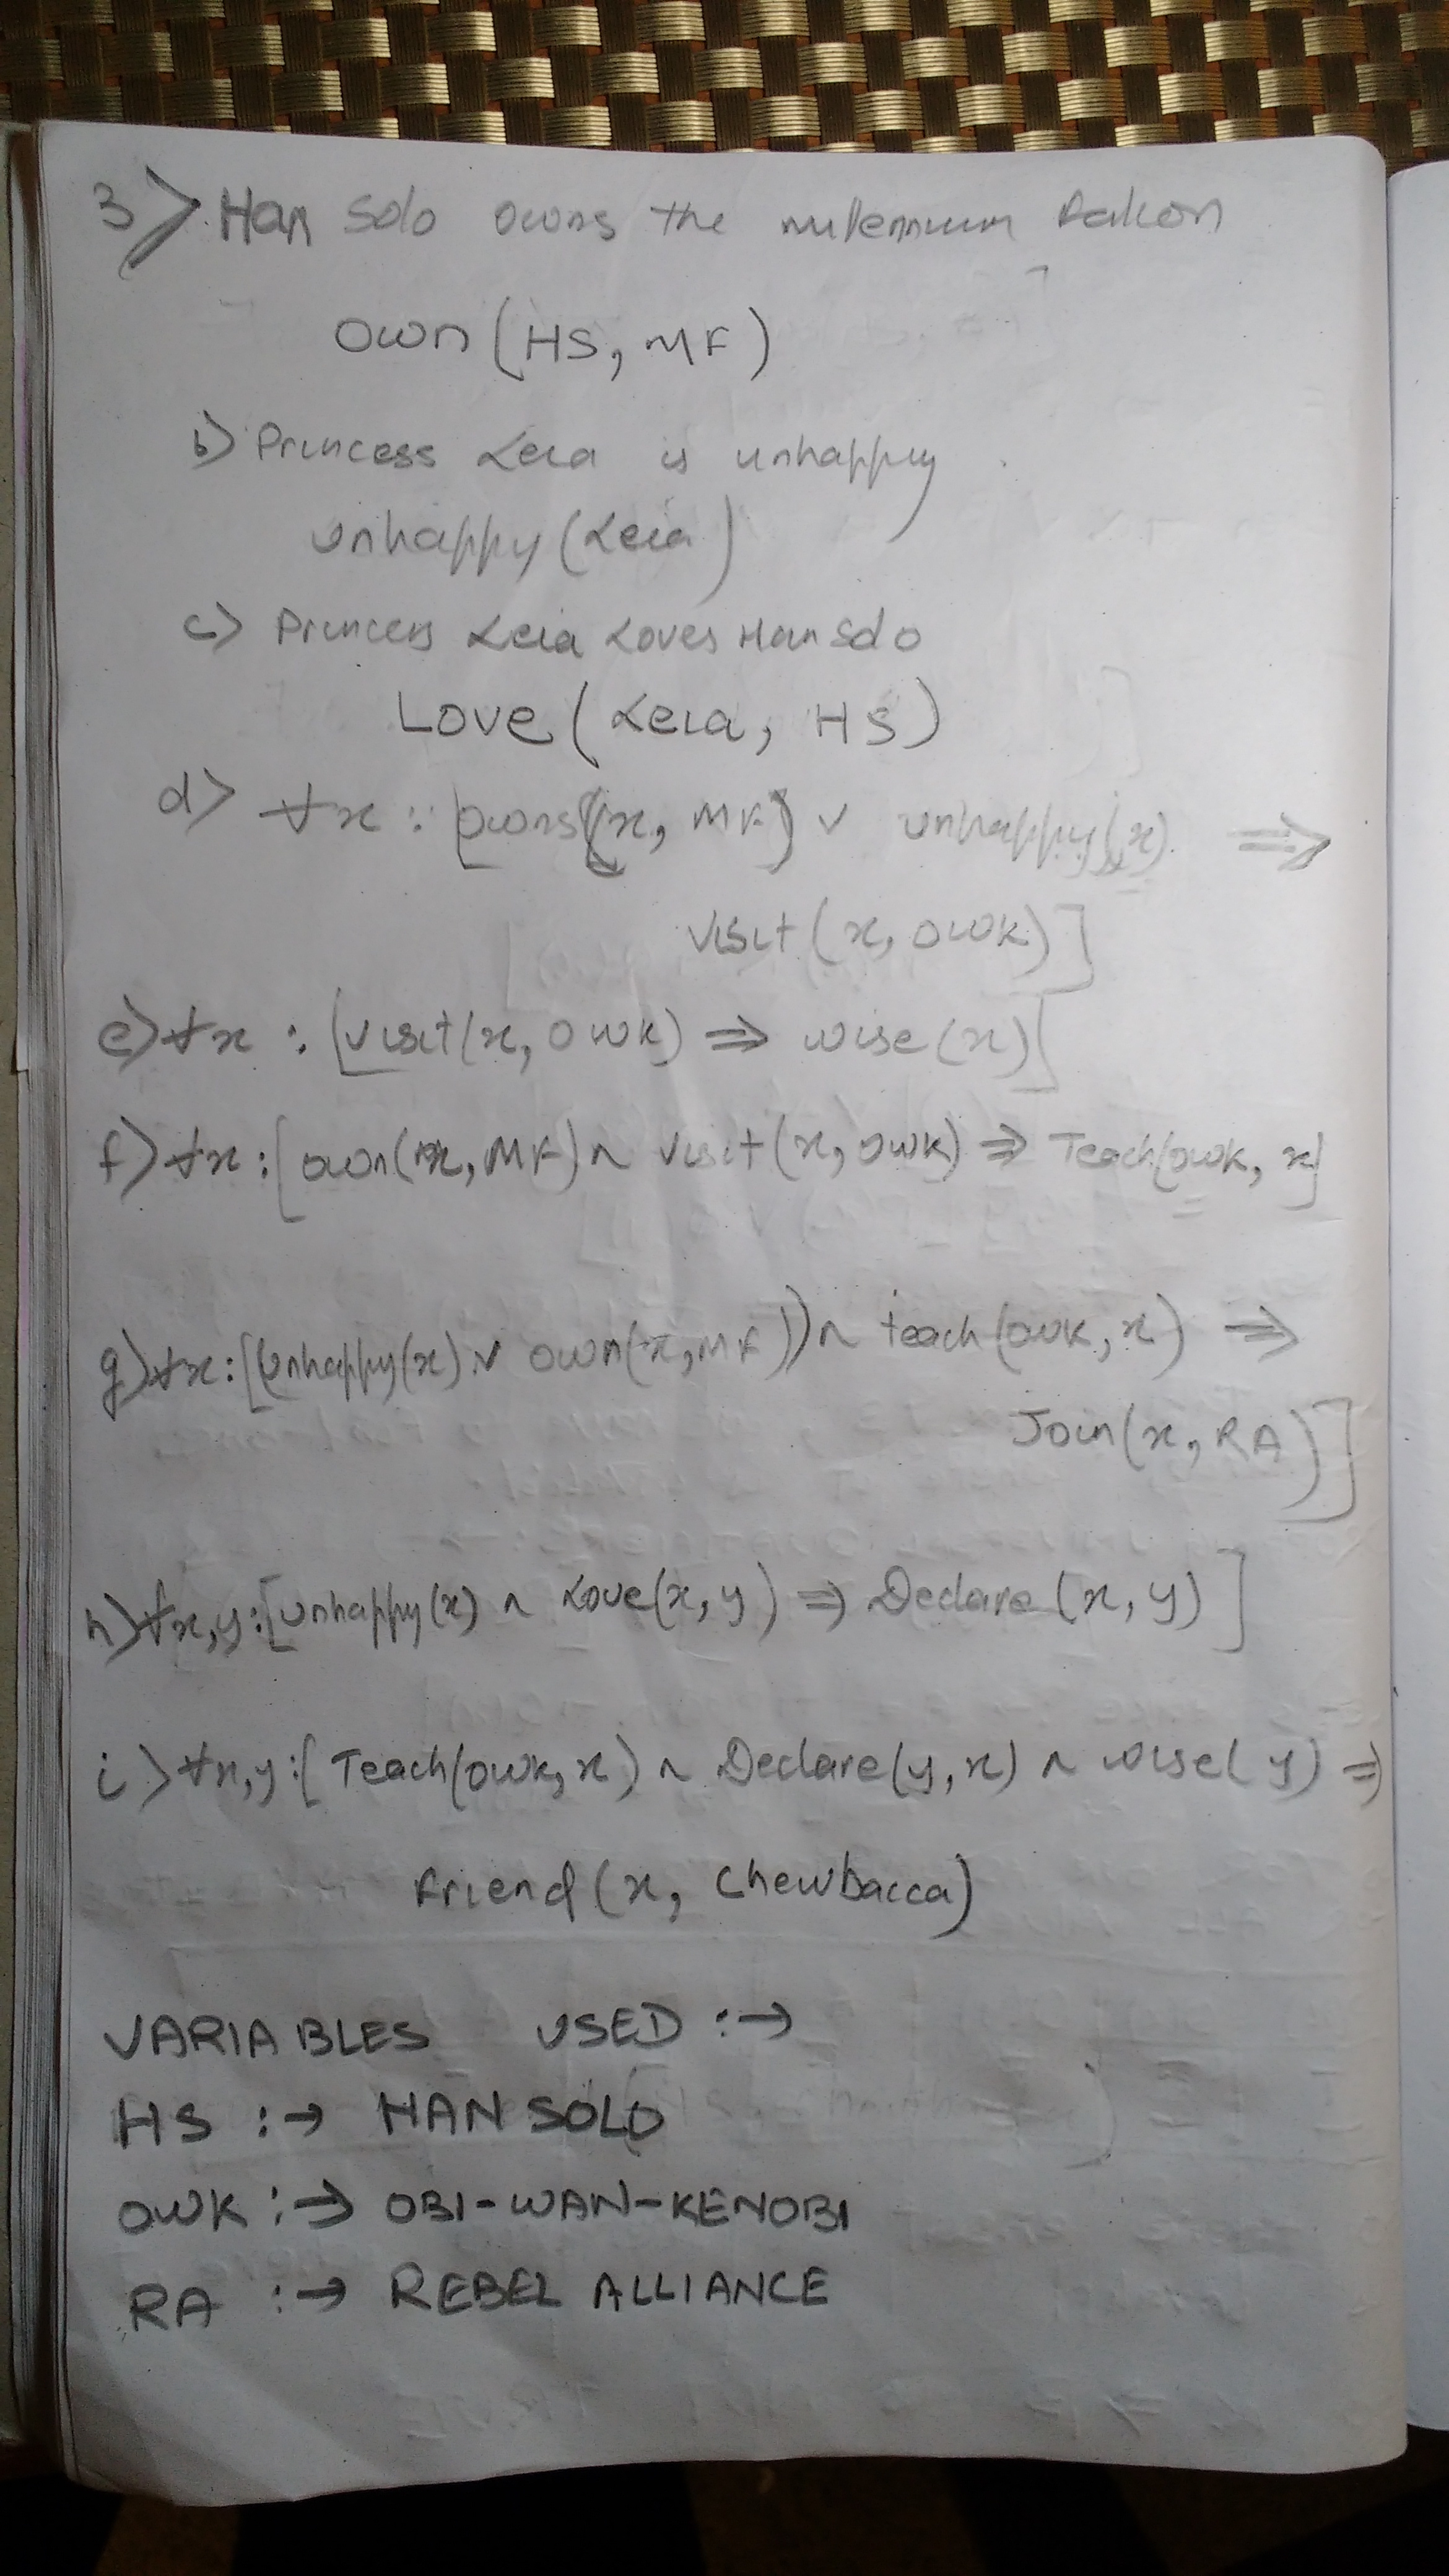 3> Han Solo owns the millennium falcon
own (HS, MF)
b) Princess Leia is unhappy.
unhappy (Leia)
c) Princess Leia Loves Han Solo
Love (Leia, HS)
d) ∀x : [owns(x, MF) ∨ unhappy(x) ⇒
visit (x, OWK)]
e) ∀x : [visit(x, OWK) ⇒ wise(x)]
f) ∀x : [own(x, MF) ∧ visit(x, OWK) ⇒ Teach(OWK, x]
g) ∀x : [(unhappy(x) ∨ own(x, MF)) ∧ teach(OWK, x) ⇒
Join(x, RA)]
h) ∀x,y : [unhappy(x) ∧ Love(x, y) ⇒ Declare (x, y)]
i) ∀x,y : [Teach(OWK, x) ∧ Declare(y, x) ∧ wise( y) ⇒
friend (x, Chewbacca)
VARIABLES USED :→
HS :→ HAN SOLO
OWK :→ OBI-WAN-KENOBI
RA :→ REBEL ALLIANCE